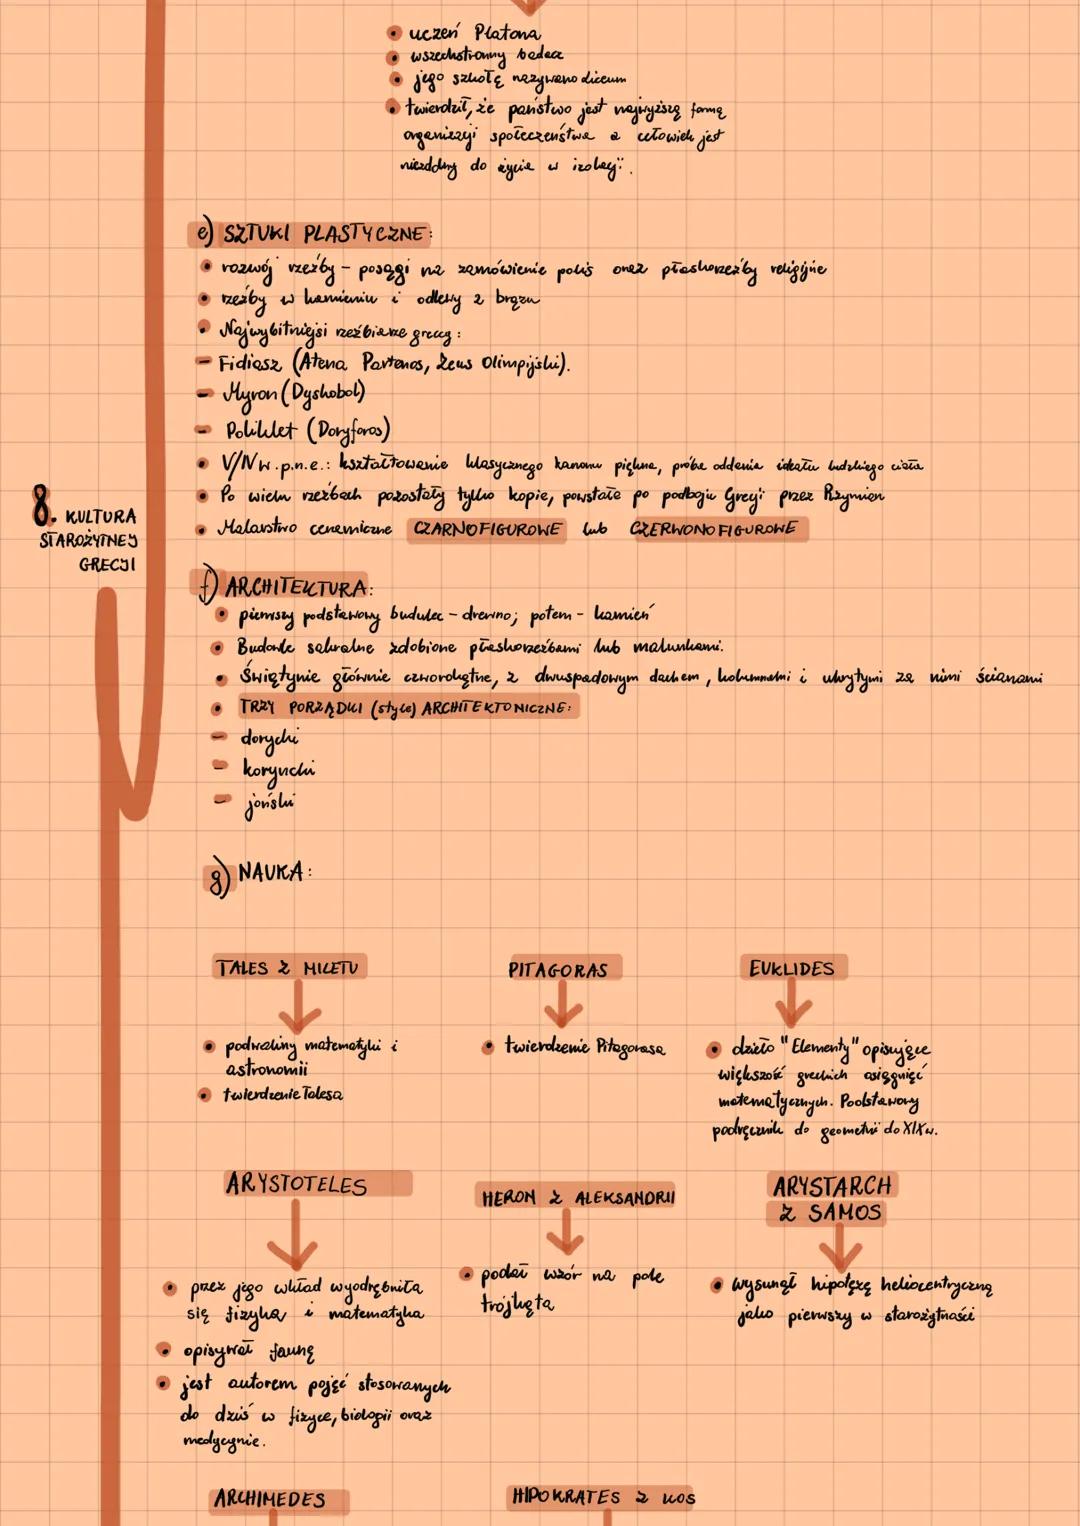 uczeń Platona
wszechstronny badacz
jego szkołę nazywano liceum
twierdził, że państwo jest najwyższą formą
organizacji społeczeństwa a człowiek jest
niezdolny do życia w izolacji.
e) SZTUKI PLASTYCZNE:
rozwój rzeźby - posągi na zamówienie polis oraz płaskorzeźby religijne
rzeźby w kamieniu i odlewy z brązu
Najwybitniejsi rzeźbiarze greccy:
- Fidiasz (Atena Partenos, Zeus Olimpijski).
- Myron (Dyskobol)
- Poliklet (Doryforos)
V/IV w. p.n.e.: kształtowanie klasycznego kanonu piękna, próba oddania ideału ludzkiego ciała
Po wielu rzeźbach pozostały tylko kopie, powstałe po podboju Grecji przez Rzymian
Malarstwo ceramiczne CZARNOFIGUROWE lub CZERWONOFIGUROWE
8. KULTURA
STAROŻYTNEJ
GRECJI
f) ARCHITEKTURA:
pierwszy podstawowy budulec - drewno; potem - kamień
Budowle sakralne zdobione płaskorzeźbami lub malunkami.
Świątynie głównie czworokątne, z dwuspadowym dachem, kolumnami i ukrytymi za nimi ścianami
TRZY PORZĄDKI (style) ARCHITEKTONICZNE:
- dorycki
- koryncki
- joński
g) NAUKA:
TALES Z MILETU
podwaliny matematyki i
astronomii
twierdzenie Talesa
PITAGORAS
twierdzenie Pitagorasa
EUKLIDES
dzieło "Elementy" opisujące
większość greckich osiągnięć
matematycznych. Podstawowy
podręcznik do geometrii do XIX w.
ARYSTOTELES
przez jego wkład wyodrębniła
się fizyka i matematyka
opisywał faunę
jest autorem pojęć stosowanych
do dziś w fizyce, biologii oraz
medycynie.
HERON Z ALEKSANDRII
podał wzór na pole
trójkąta
ARYSTARCH
Z SAMOS
wysunął hipotezę heliocentryczną
jako pierwszy w starożytności
ARCHIMEDES
HIPOKRATES Z KOS